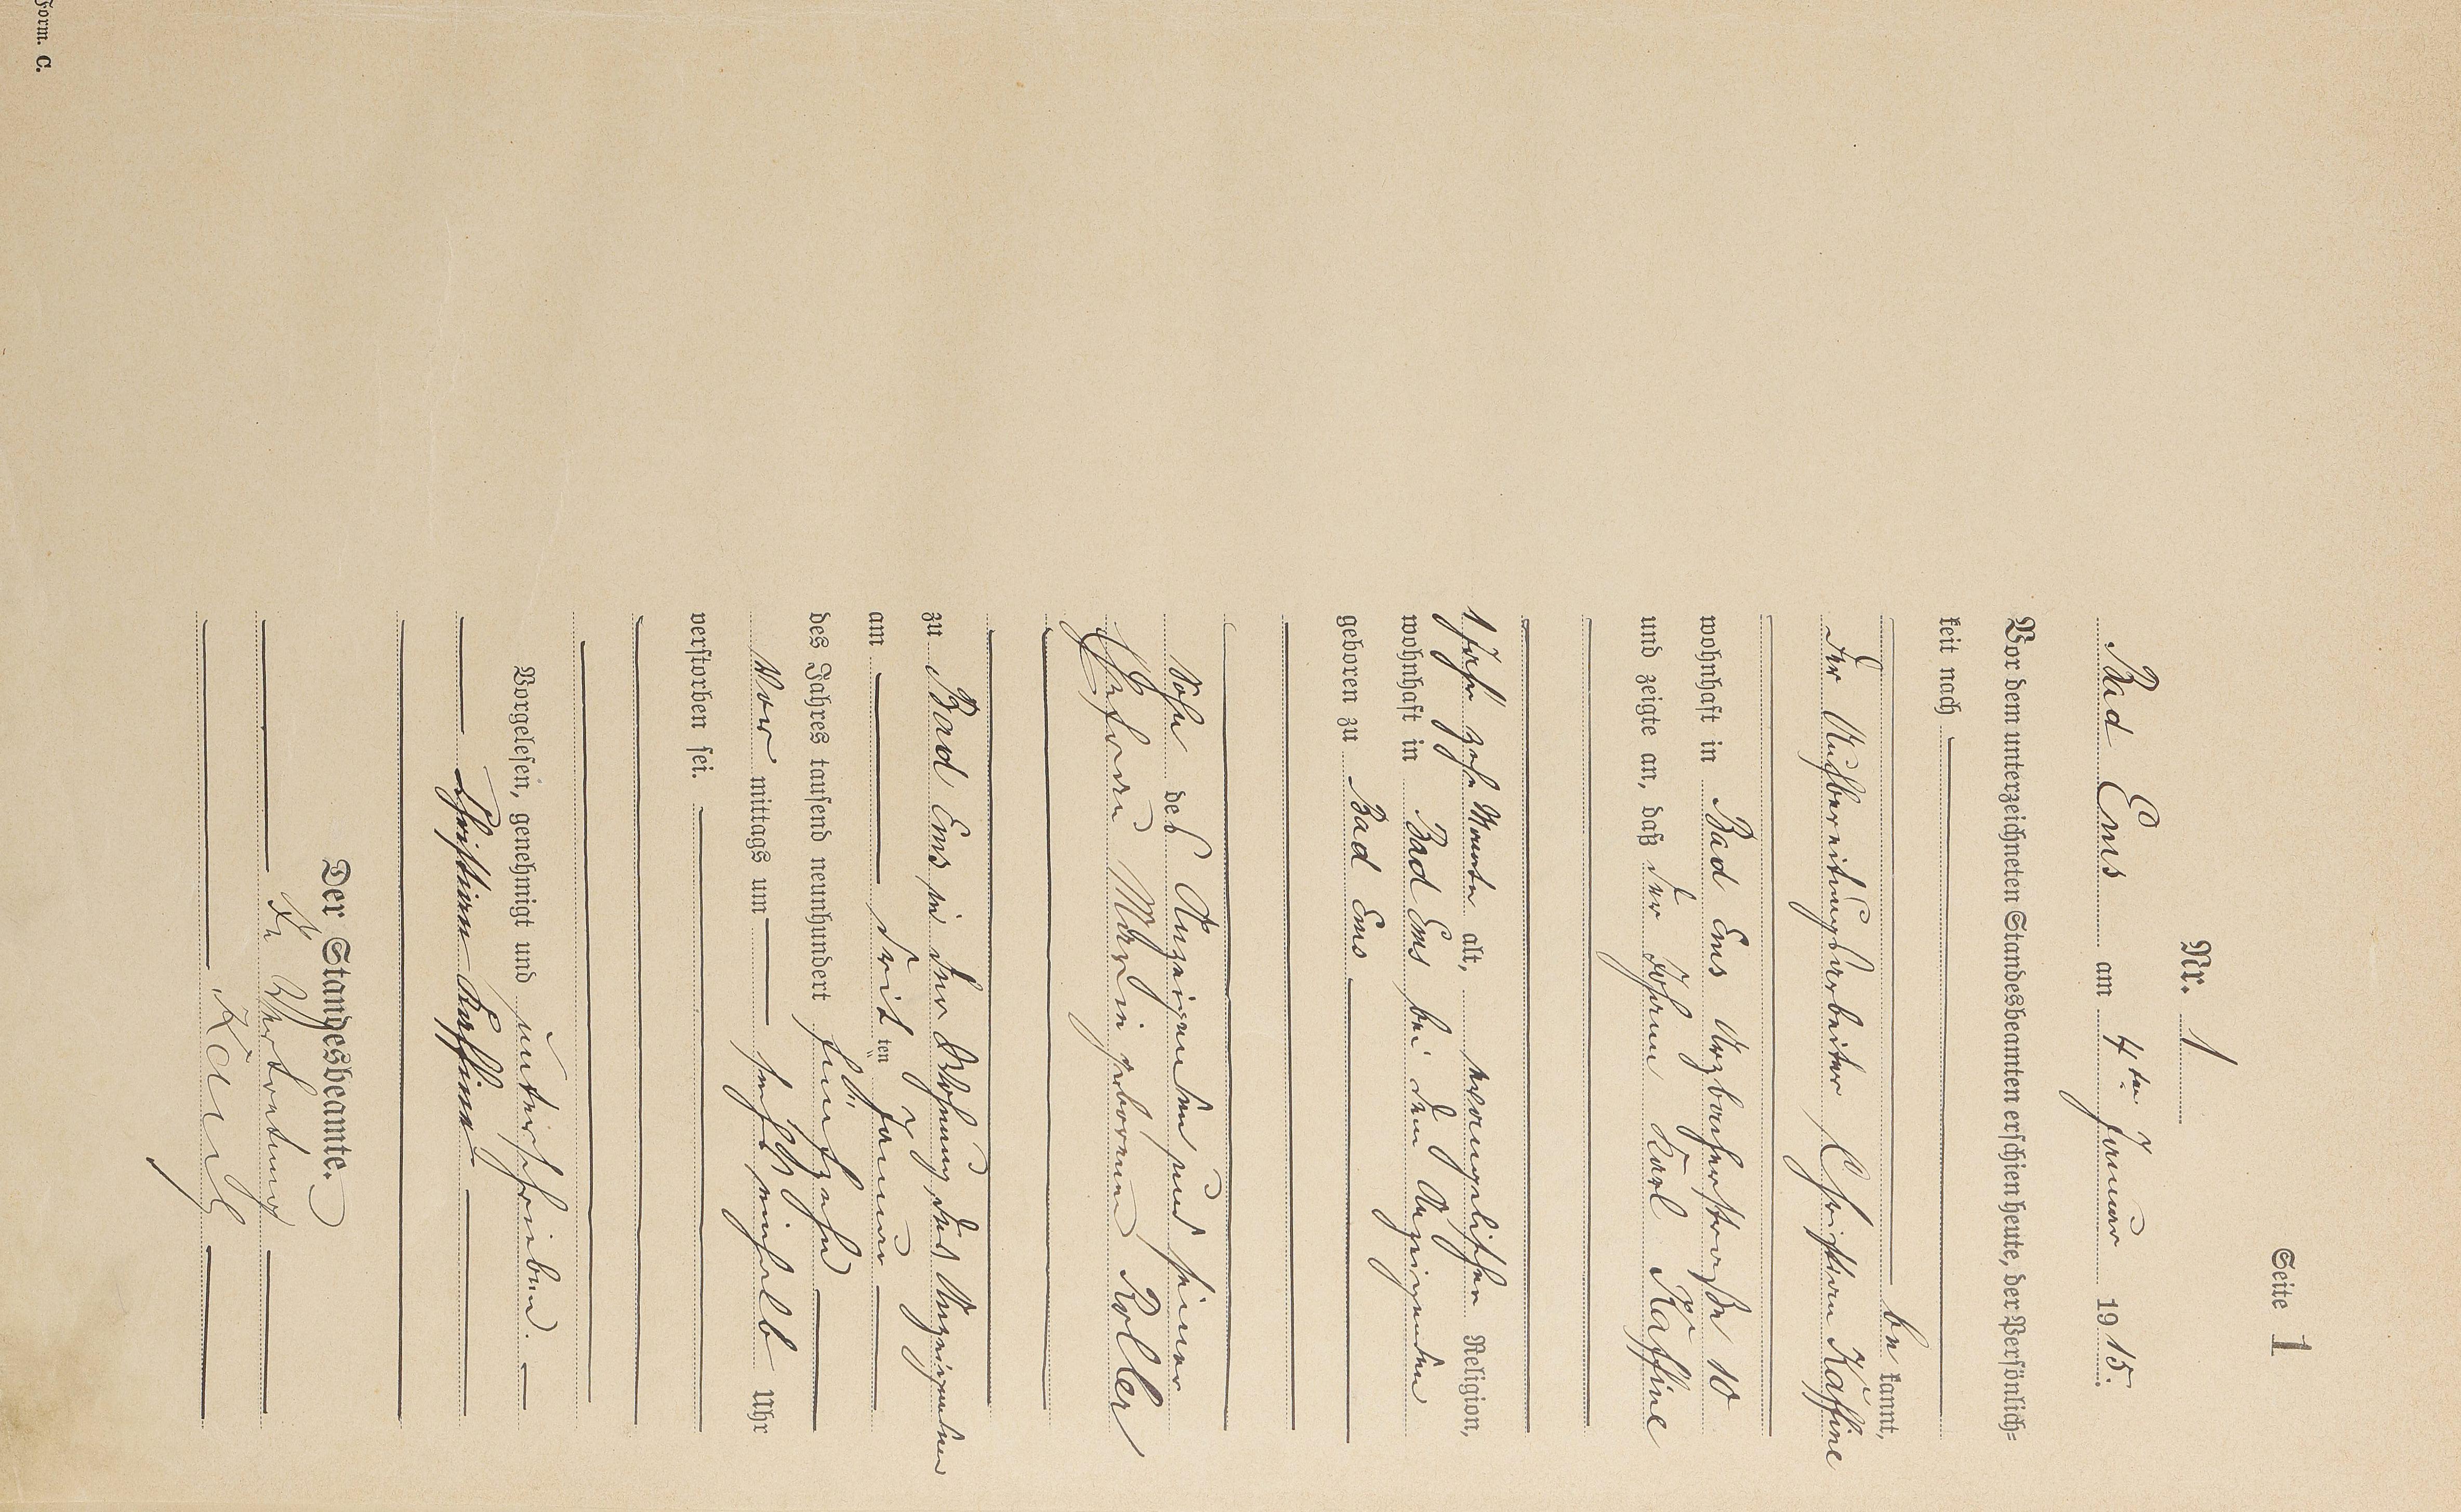 Seite 1
Nr. 1
Bad Ems am 4ten Januar 1915.
Vor dem unterzeichneten Standesbeamten erschien heute, der Persönlich-
keit nach
be kannt,
der Aufbereitungsarbeiter Christian Kaffine
wohnhaft in Bad Ems Arzbacherstraße 10
und zeigte an, daß der Johann Karl Kaffine
1 Jahr zehn Monate alt, evangelischer Religion,
wohnhaft in Bad Ems bei dem Anzeigenden
geboren zu Bad Ems
Sohn des Anzeigenden und seiner
Ehefrau Marie geborene Roller
zu Bad Ems in der Wohnung des Anzeigenden
am dritten Januar
des Jahres tausend neunhundert fünfzehn
Vor mittags um sechs einhalb Uhr
verstorben sei.
Vorgelesen, genehmigt und unterschrieben.
Christian Kaffine
Der Standesbeamte.
In Vertretung
Kaul
Form. C.